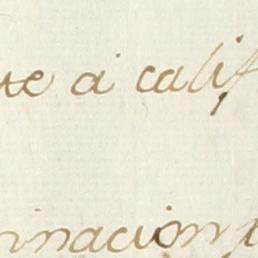 te a calif
inacion